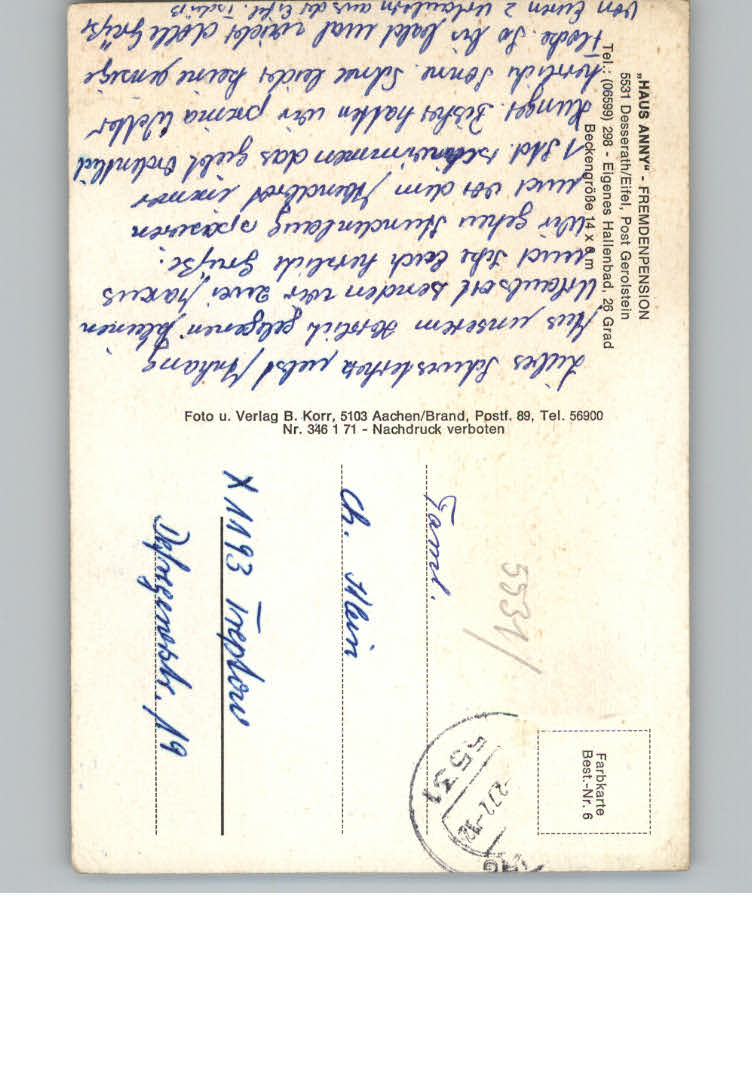 „HAUS ANNY“ - FREMDENPENSION
5531 Desserath/Eifel, Post Gerolstein
Tel.: (06599) 298 - Eigenes Hallenbad, 26 Grad
Beckengröße 14 x 6 m
Liebes Schwesterherz nebst Anhang
Aus unserem herrlich gelegenen kleinen
Urlaubsort senden wir zwei
und Ihr Euch herzliche Grüße.
Wir gehen stundenlang spazieren
und vor dem Abendbrot immer
1 Std. schwimmen das giebt ordentlich
Hunger. Bisher hatten wir prima Wetter
herrliche Sonne. Schnee leider keine
Flocke. So bis bald mal wieder tolle Grüße
von Euren 2 Urlaubern aus der Eifel. Tschüß
Foto u. Verlag B. Korr, 5103 Aachen/Brand, Postf. 89, Tel. 56900
Nr. 346 1 71 - Nachdruck verboten
Farbkarte
Best.-Nr. 6
5531
-2.72-12
5531/
Faml.
Ch. Klein
X 1193 Treptow
19